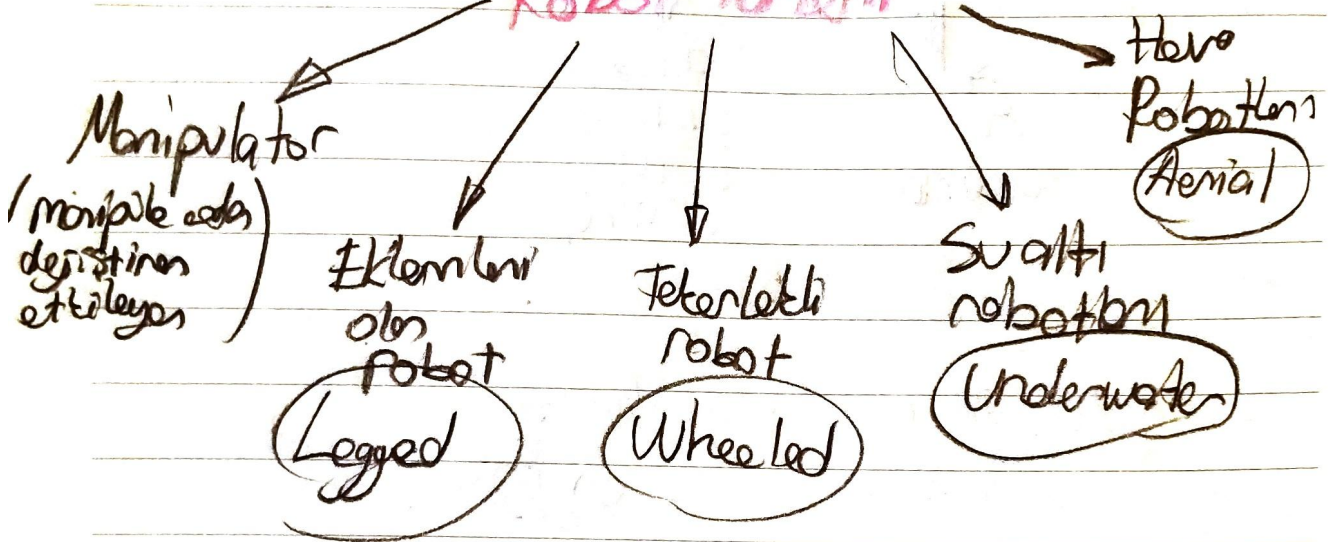 Robot
Manipulator
(manipüle eden
değiştiren
etkileyen)
Eklemleri
olan
robot
Legged
Tekerlekli
robot
Wheeled
Su altı
robotları
Underwater
Hava
Robotları
Aerial